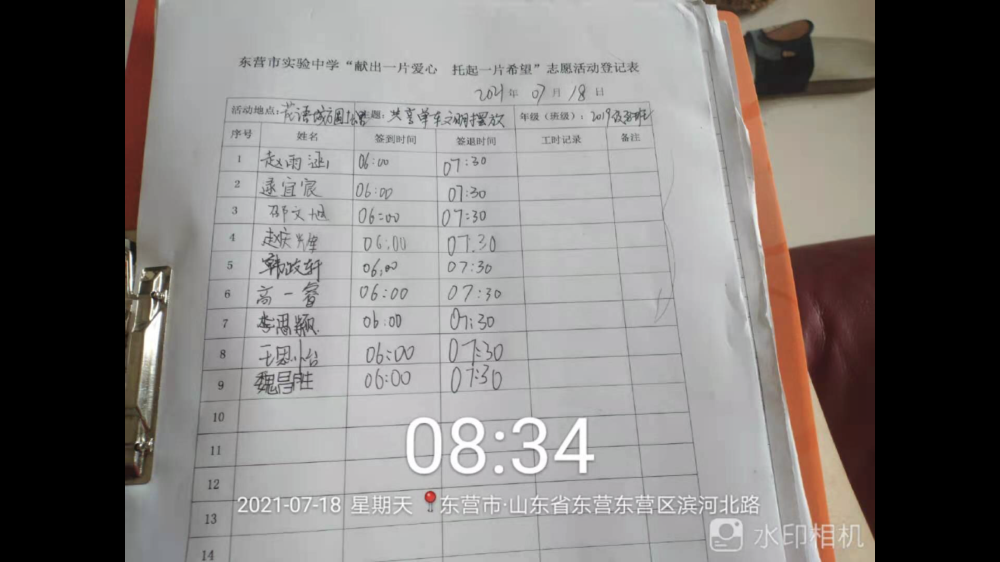 东营市实验中学“献出一片爱心 托起一片希望”志愿活动登记表
2021年 07月 18日
活动地点: 花语城周边 主题: 共享单车文明摆放 年级（班级）: 2019级
序号 姓名 签到时间 签退时间 工时记录 备注
1 赵雨涵 06:00 07:30
2 宜宸 06:00 07:30
3 邵文旭 06:00 07:30
4 赵庆烽 06:00 07:30
5 韩政轩 06:00 07:30
6 高一睿 06:00 07:30
7 李思颖 06:00 07:30
8 王思 06:00 07:30
9 魏昌胜 06:00 07:30
10
11
12
13
14
08:34
2021-07-18 星期天 东营市·山东省东营东营区滨河北路
水印相机